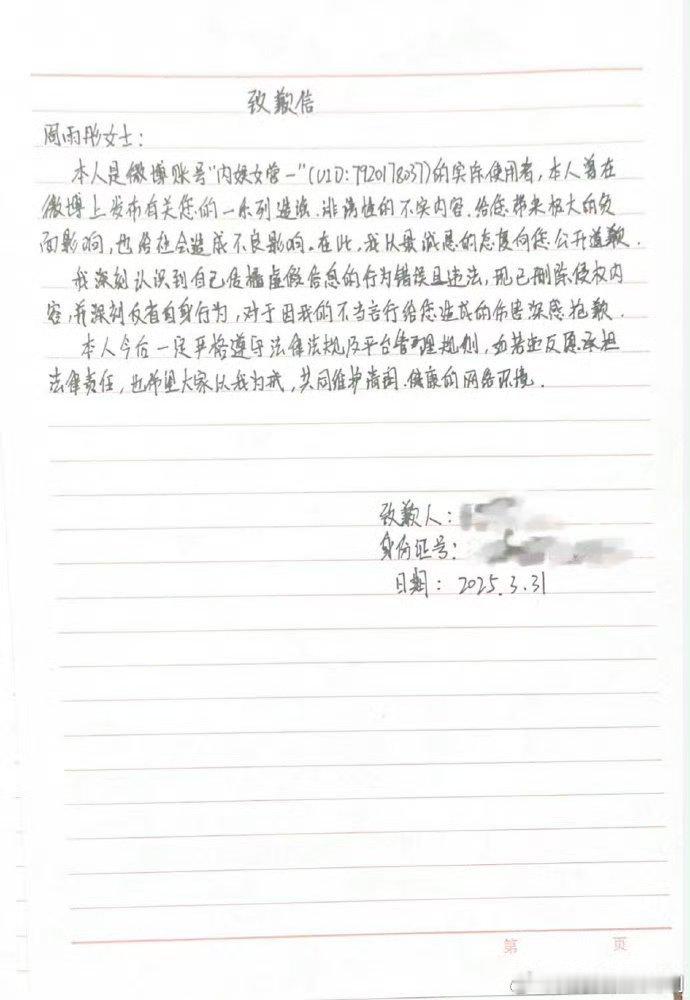 致歉信
周雨彤女士：
本人是微博账号"内娱女管一"(UID:7920178037)的实际使用者，本人曾在
微博上发布有关您的一系列造谣、诽谤性的不实内容，给您带来极大的负
面影响，也给社会造成不良影响。在此，我以最诚恳的态度向您公开道歉．
我深刻认识到自己传播虚假信息的行为错误且违法，现已删除侵权内
容，并深刻反省自身行为，对于因我的不当言行给您造成的伤害深感抱歉．
本人今后一定严格遵守法律法规及平台管理规则，如若违反愿承担
法律责任，也希望大家以我为戒，共同维护清朗、健康的网络环境．
致歉人：
身份证号：
日期：2025.3.31
第 页